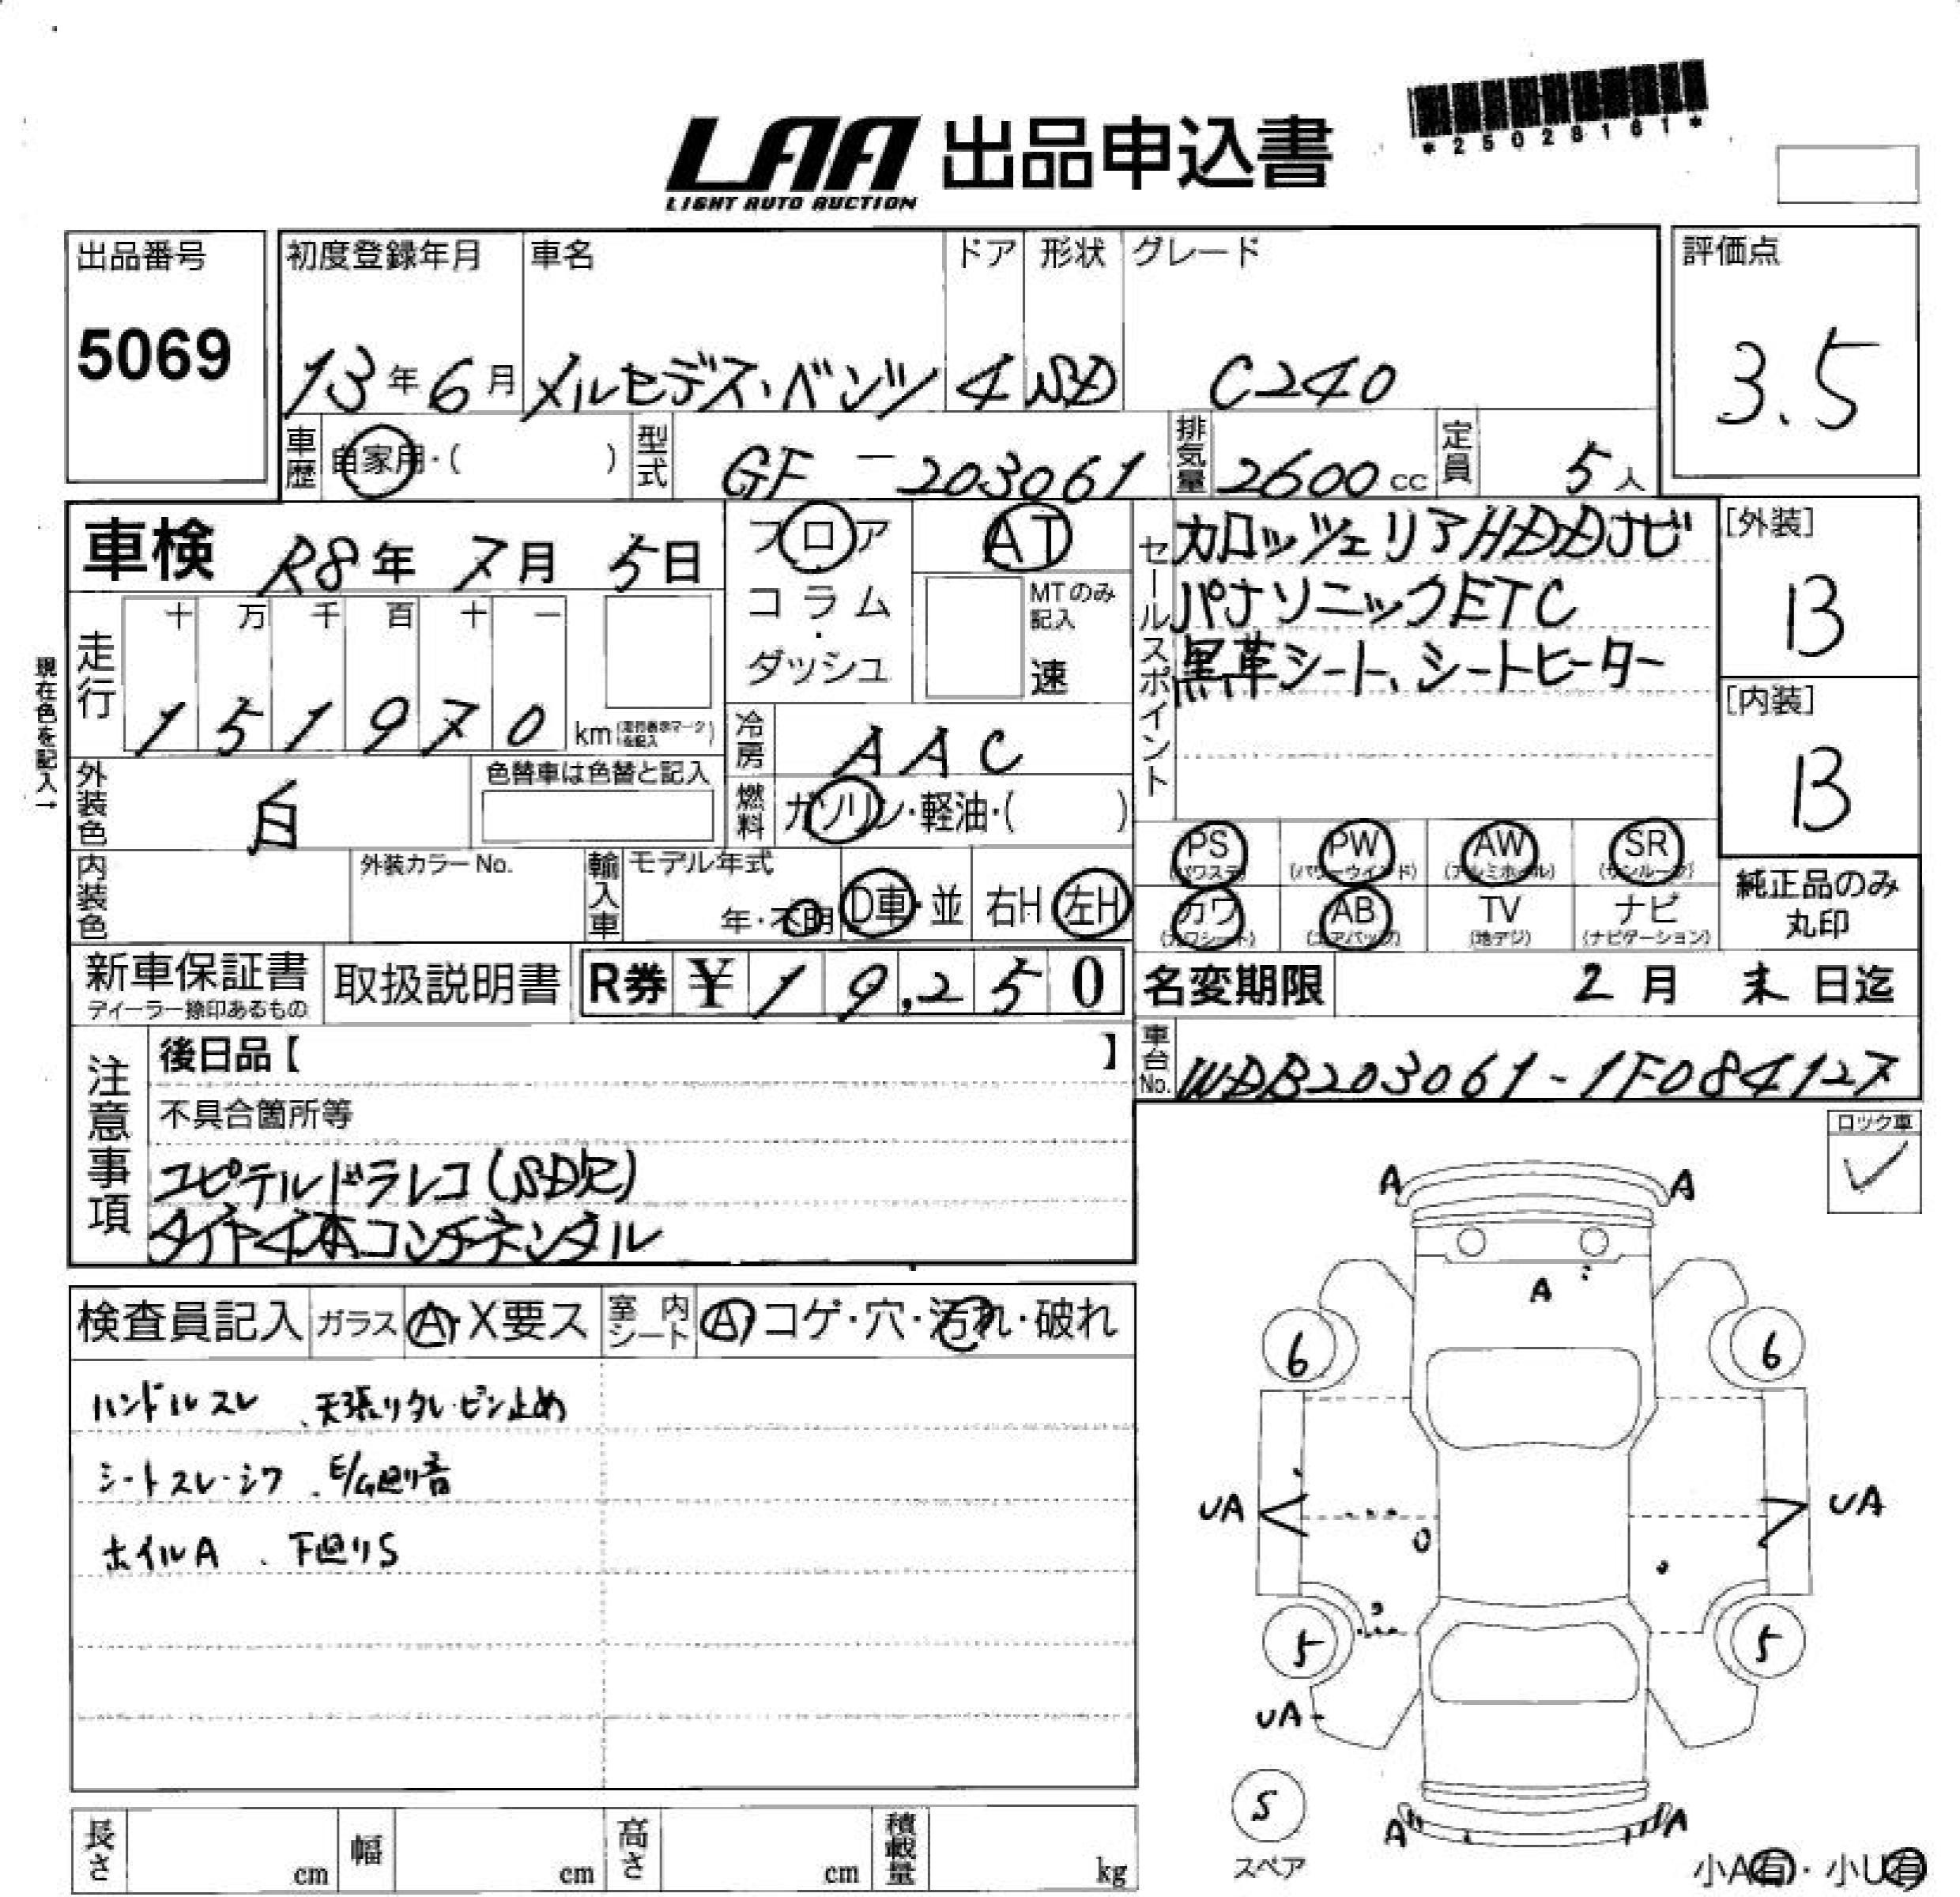 *25028161*
LAA 出品申込書
LIGHT AUTO AUCTION
出品番号
5069
初度登録年月 車名 ドア 形状 グレード
13年 6月 メルセデス・ベンツ 4 SD C240
評価点
3.5
車歴 自家用・( ) 型式 GF-203061 排気量 2600cc 定員 5人
車検 R8年 7月 5日
フロア
コラム
・
ダッシュ
AT
MTのみ
記入
速
セールスポイント
カロッツェリアHDDナビ
パナソニックETC
黒革シート、シートヒーター
[外装]
B
[内装]
B
現在色を記入→
走行
十 万 千 百 十 一
1 5 1 9 7 0 km
冷房 AAC
外装色 白
色替車は色替と記入
燃料 ガソリン・軽油・( )
PS PW AW SR
(パワステ) (パワーウインド) (アルミホイル) (サンルーフ)
カワ AB TV ナビ
(カワシート) (エアバッグ) (地デジ) (ナビゲーション)
純正品のみ
丸印
内装色
外装カラーNo.
輸入車
モデル年式
年・不明
D車・並 右H 左H
新車保証書
ディーラー捺印あるもの
取扱説明書
R券 ¥ 19,250
名変期限 2月 末日迄
車台No. WDB203061-1F084127
注意事項
後日品【 】
不具合箇所等
ユピテルドラレコ(SD欠)
タイヤ4本コンチネンタル
ロック車
✓
検査員記入 ガラス A・X要ス 室内シート A コゲ・穴・汚れ・破れ
ハンドルスレ、天張リタレ・ピン止め
シートスレ・シワ、E/G廻り音
ホイルA、下廻りS
A A
A
6 6
UA UA
5 5
UA
S
スペア
A A
小A有・小U有
長さ cm 幅 cm 高さ cm 積載量 kg